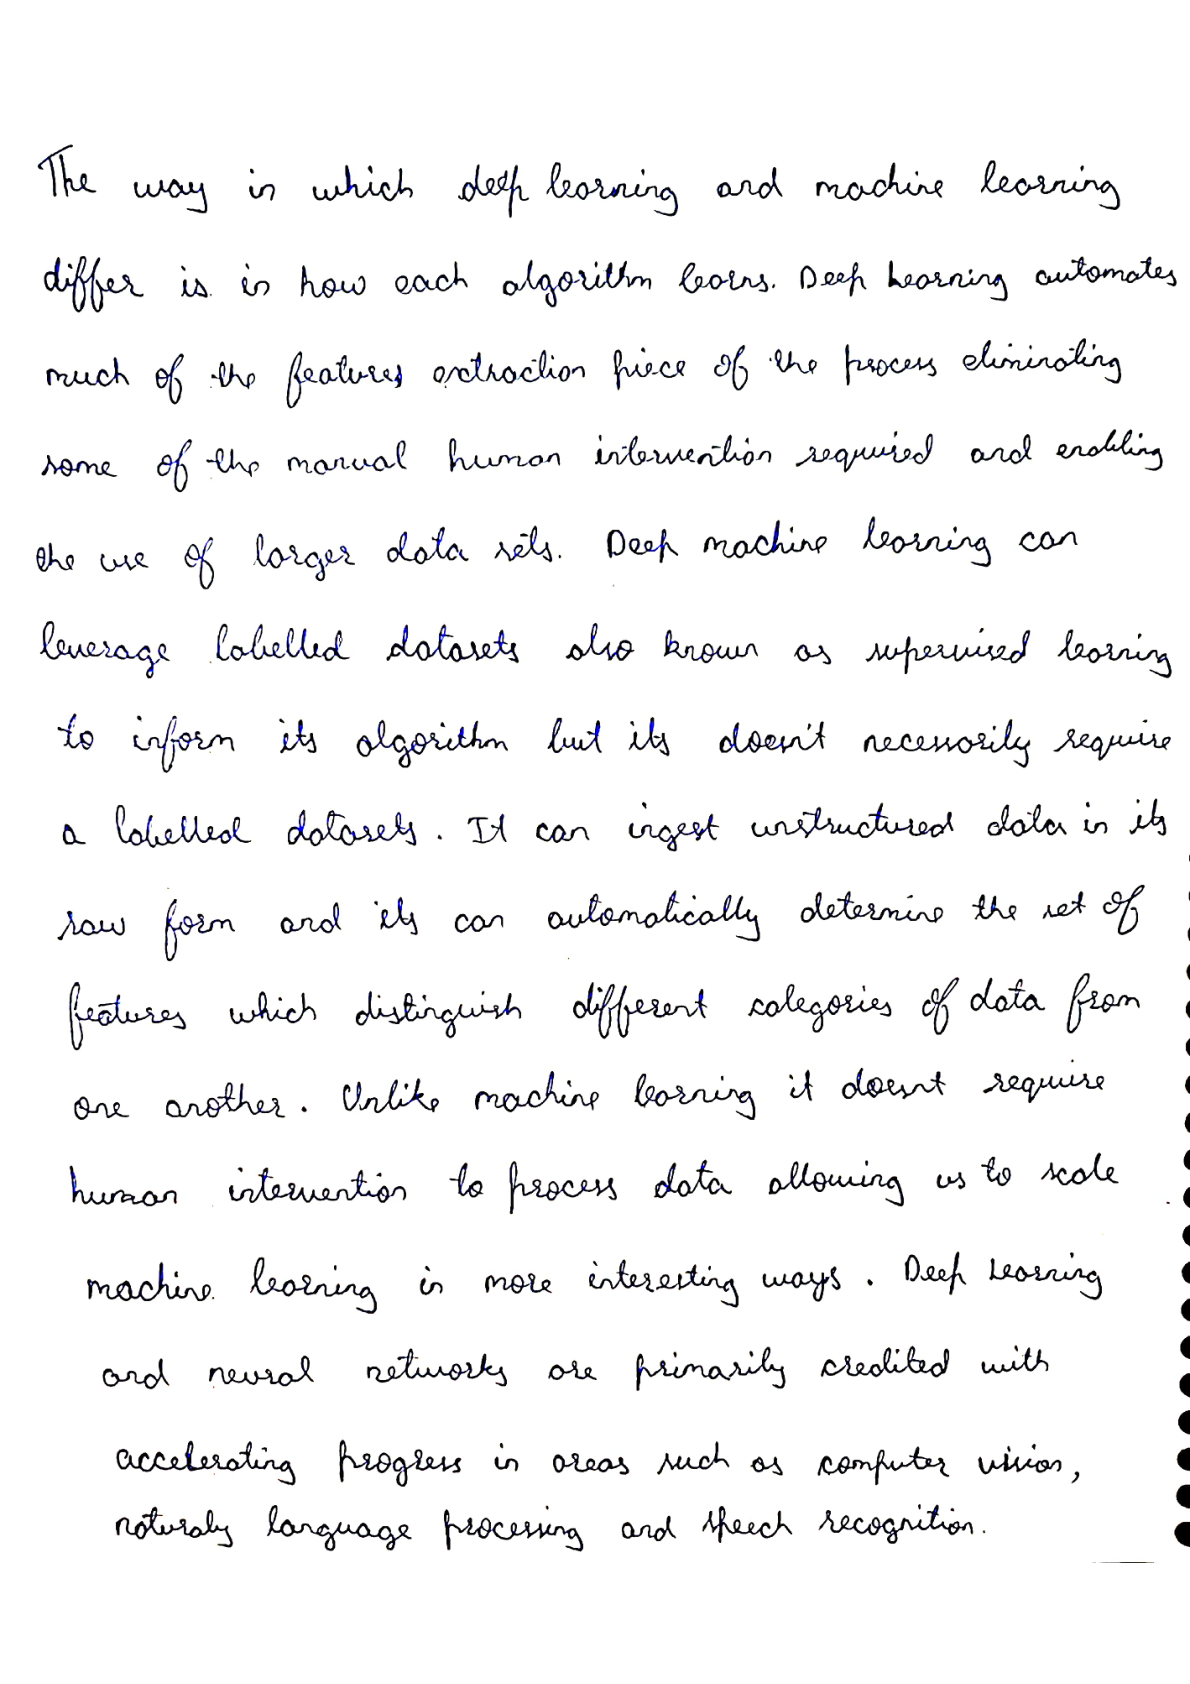 The way in which deep learning and machine learning
differ is in how each algorithm learns. Deep Learning automates
much of the features extraction piece of the process eliminating
some of the manual human intervention required and enabling
the use of larger data sets. Deep machine learning can
leverage labelled datasets also known as supervised learning
to inform its algorithm but its doesn't necessarily require
a labelled datasets. It can ingest unstructured data in its
raw form and its can automatically determine the set of
features which distinguish different categories of data from
one another. Unlike machine learning it doesnt require
human intervention to process data allowing us to scale
machine learning in more interesting ways. Deep Learning
and neural networks are primarily credited with
accelerating progress in areas such as computer vision,
naturaly language processing and speech recognition.